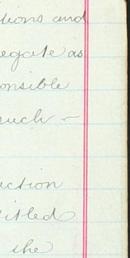 tions and
egate as
onsible
such -
uction
titled
the